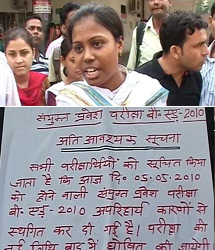 संयुक्त प्रवेश परीक्षा बी॰ एड॰-2010
अति आवश्यक सूचना
सभी परीक्षार्थियों को सूचित किया
जाता है कि आज दि॰ 05.05.2010
को होने वाली संयुक्त प्रवेश परीक्षा
बी॰ एड॰-2010 अपरिहार्य कारणों से
स्थगित कर दी गई है। परीक्षा की
नई तिथि बाद में घोषित की जायेगी